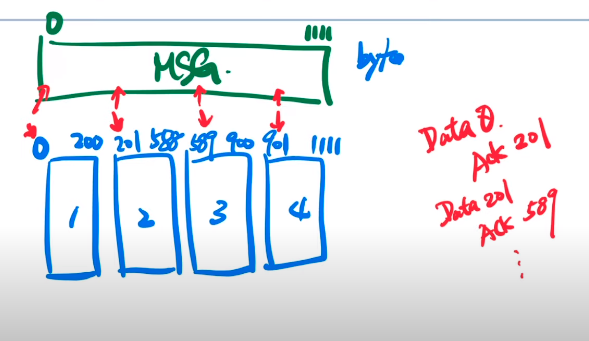 0 1111
MSG.
byte
0 200 201 588 589 900 901 1111
1 2 3 4
Data 0.
Ack 201
Data 201
Ack 589
⋮